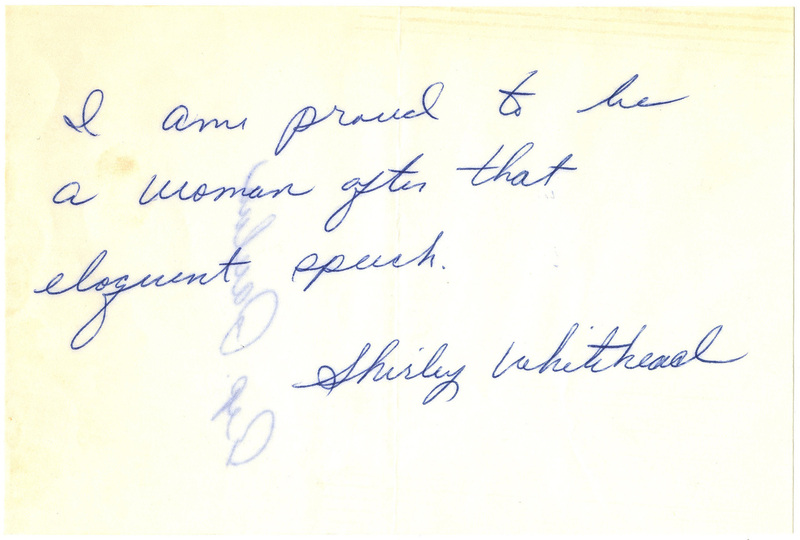 I am proud to be
a woman after that
eloquent speech.
Shirley Whitehead